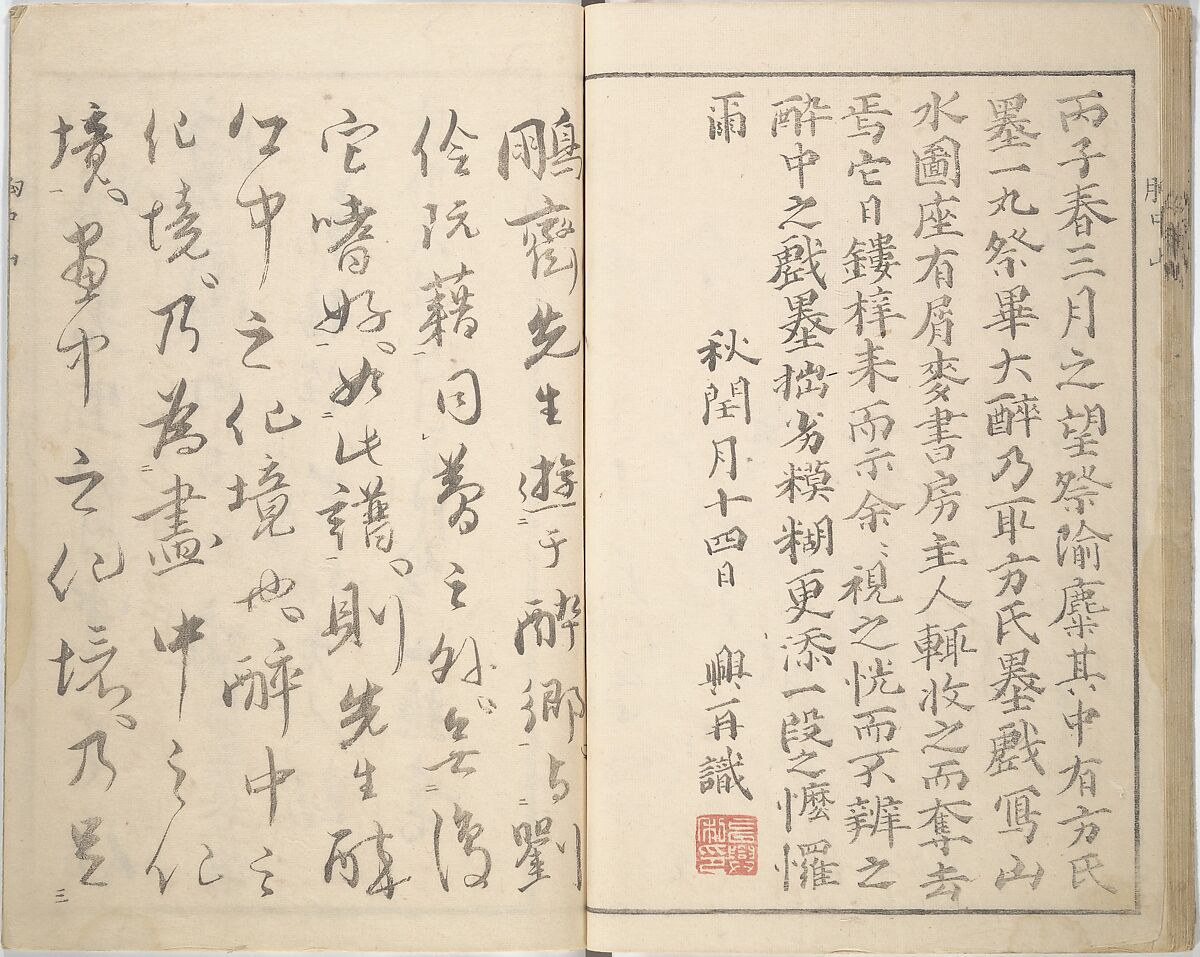 丙子春三月之望祭隃麋其中有方氏
墨一丸祭畢大醉乃取方氏墨戲寫山
水圖座有屑麥書房主人輒收之而奪去
焉它日鏤梓来而示余〻視之恍而不辨之
醉中之戲墨拙劣模糊更添一段之懡㦬
爾
秋閏月十四日　興再識
鵬齋先生遊于醉鄉与劉
伶阮藉同夢之外。無復
它嗜好。如此譜。則先生醉
仁中之化境也。醉中之
化境。乃為畫中之化
境。畫中之化境。乃是